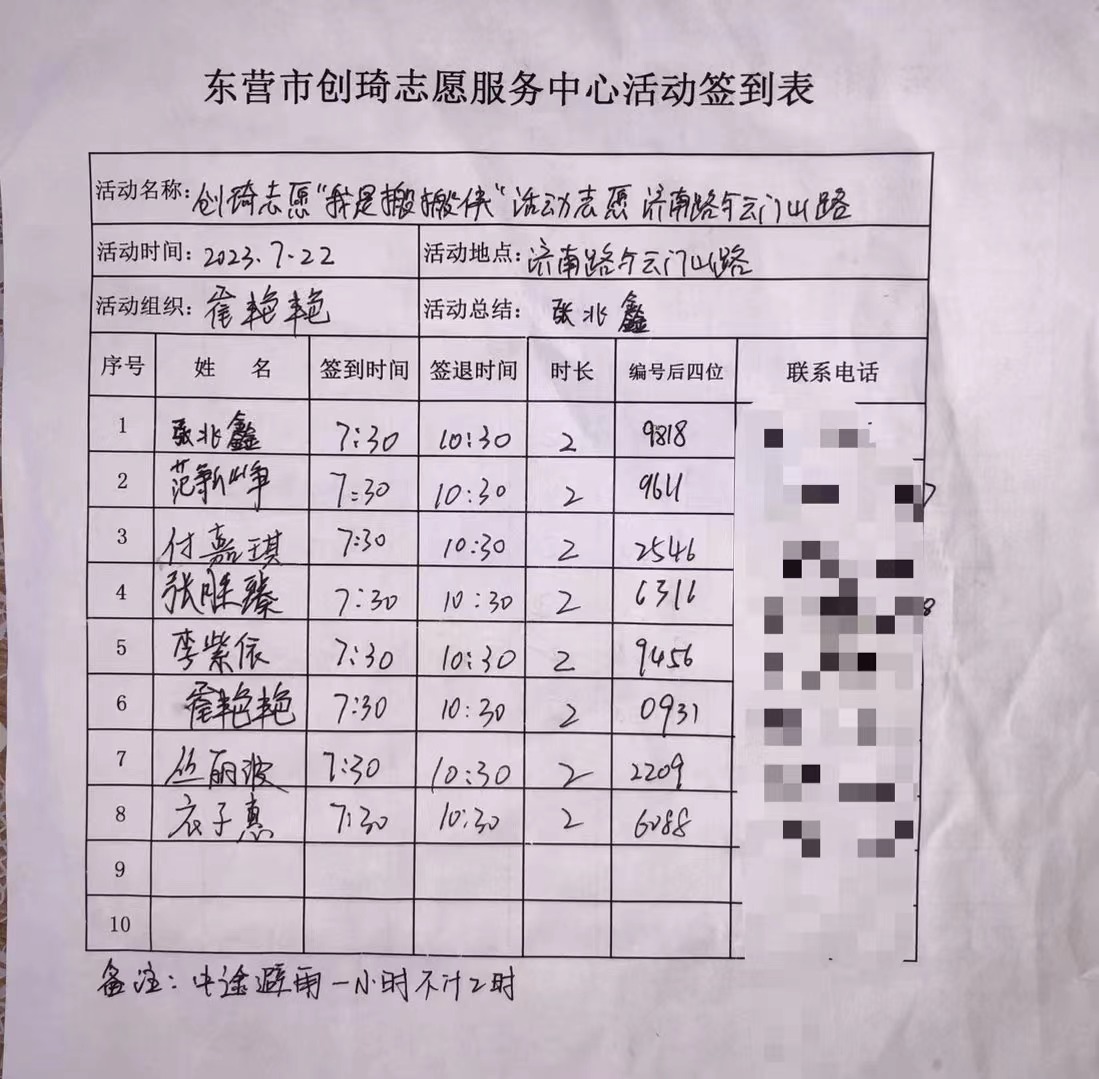 东营市创琦志愿服务中心活动签到表
活动名称: 创琦志愿“我是搬搬侠”活动志愿 济南路与云门山路
活动时间: 2023.7.22 活动地点: 济南路与云门山路
活动组织: 霍艳艳 活动总结: 张兆鑫
序号 姓 名 签到时间 签退时间 时长 编号后四位 联系电话
1 张兆鑫 7:30 10:30 2 9818
2 范新峥 7:30 10:30 2 9611
3 付嘉琪 7:30 10:30 2 2546
4 张胜臻 7:30 10:30 2 6316
5 李紫依 7:30 10:30 2 9456
6 霍艳艳 7:30 10:30 2 0931
7 丛丽波 7:30 10:30 2 2209
8 衣子惠 7:30 10:30 2 6088
9
10
备注: 中途避雨一小时不计工时